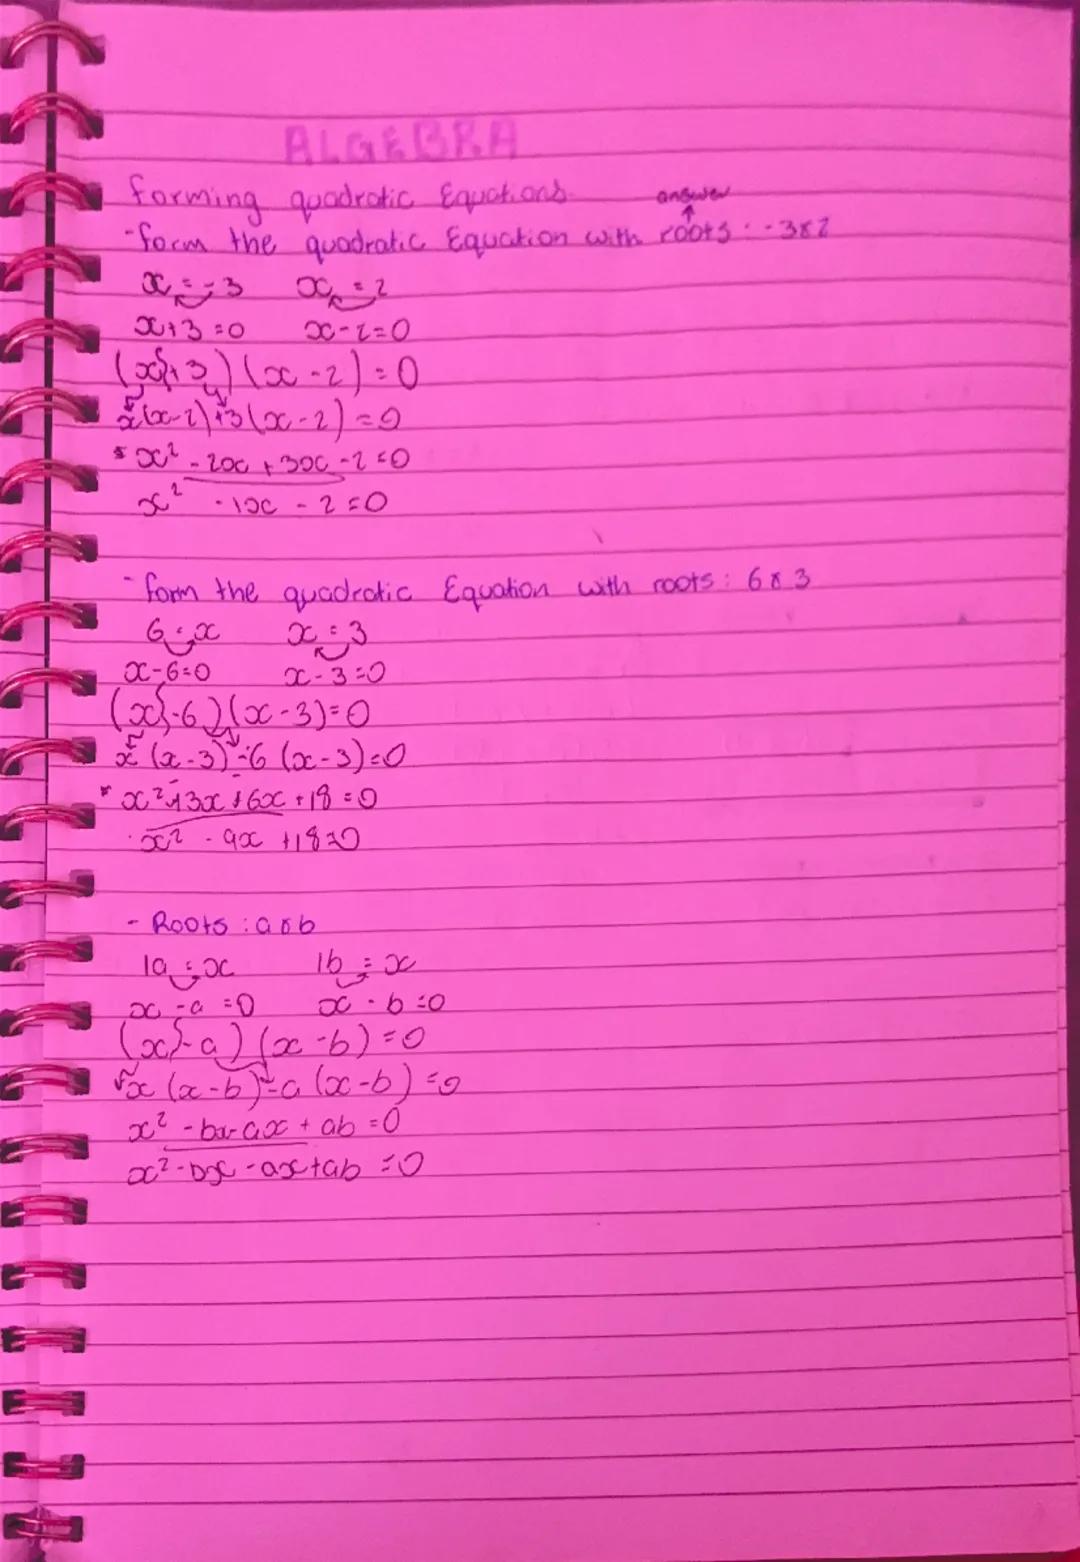 ALGEBRA
forming quadratic Equations.
answer
↑
- form the quadratic Equation with roots: -3 & 2
x = -3 x = 2
x+3=0 x-2=0
(x+3)(x-2)=0
x(x-2)+3(x-2)=0
* x² -2x +3x -2=0
x² -1x -2=0
- form the quadratic Equation with roots: 6 & 3
6=x x=3
x-6=0 x-3=0
(x-6)(x-3)=0
x(x-3)-6(x-3)=0
* x²-3x-6x+18=0
x² -9x +18=0
- Roots: a & b
1a=x 1b=x
x-a=0 x-b=0
(x-a)(x-b)=0
x(x-b)-a(x-b)=0
x² -bx-ax+ab=0
x²-bx-ax+ab=0